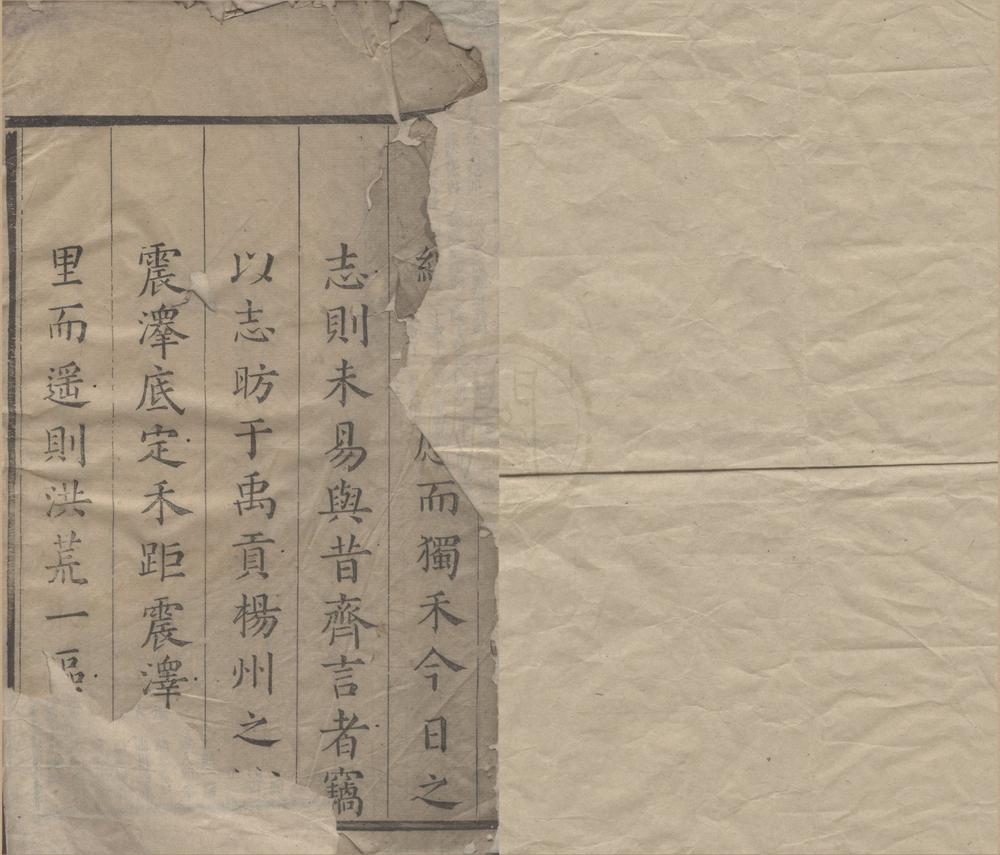 而獨禾今日之
志則未易與昔齊言者竊
以志昉于禹貢楊州之
震澤底定禾距震澤
里而遥則洪荒一